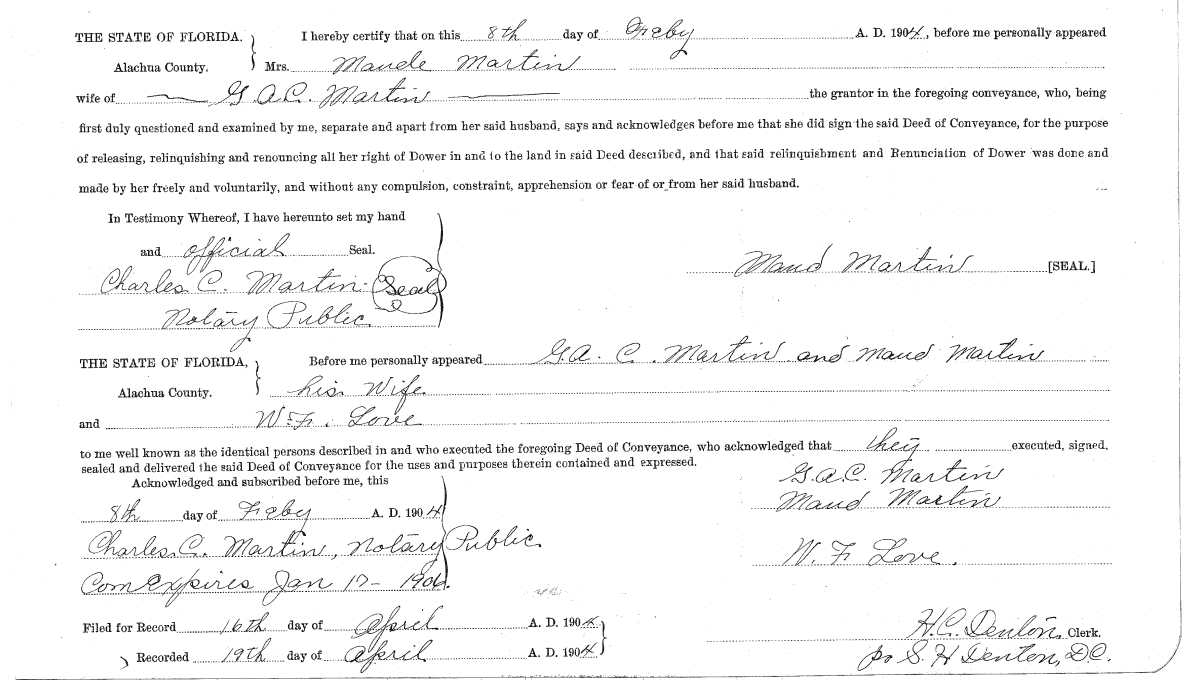 THE STATE OF FLORIDA. I hereby certify that on this 8th day of Feby A. D. 1904, before me personally appeared
Alachua County. Mrs. Maude Martin
wife of G.A.C. Martin the grantor in the foregoing conveyance, who, being
first duly questioned and examined by me, separate and apart from her said husband, says and acknowledges before me that she did sign the said Deed of Conveyance, for the purpose
of releasing, relinquishing and renouncing all her right of Dower in and to the land in said Deed described, and that said relinquishment and Renunciation of Dower was done and
made by her freely and voluntarily, and without any compulsion, constraint, apprehension or fear of or from her said husband.
In Testimony Whereof, I have hereunto set my hand
and official Seal.
Maud Martin [SEAL.]
Charles C. Martin. Seal
Notary Public
THE STATE OF FLORIDA, Before me personally appeared G.A. C. Martin and Maud Martin
Alachua County. his Wife
and W.F. Love
to me well known as the identical persons described in and who executed the foregoing Deed of Conveyance, who acknowledged that they executed, signed,
sealed and delivered the said Deed of Conveyance for the uses and purposes therein contained and expressed.
Acknowledged and subscribed before me, this
G.A.C. Martin
Maud Martin
8th day of Feby A. D. 1904
Charles C. Martin, Notary Public
W. F. Love.
Com Expires Jan 17- 190
Filed for Record 16th day of April A. D. 1904
H.C. Denton, Clerk.
Recorded 19th day of April A. D. 1904
pr S. H Denton, D.C.